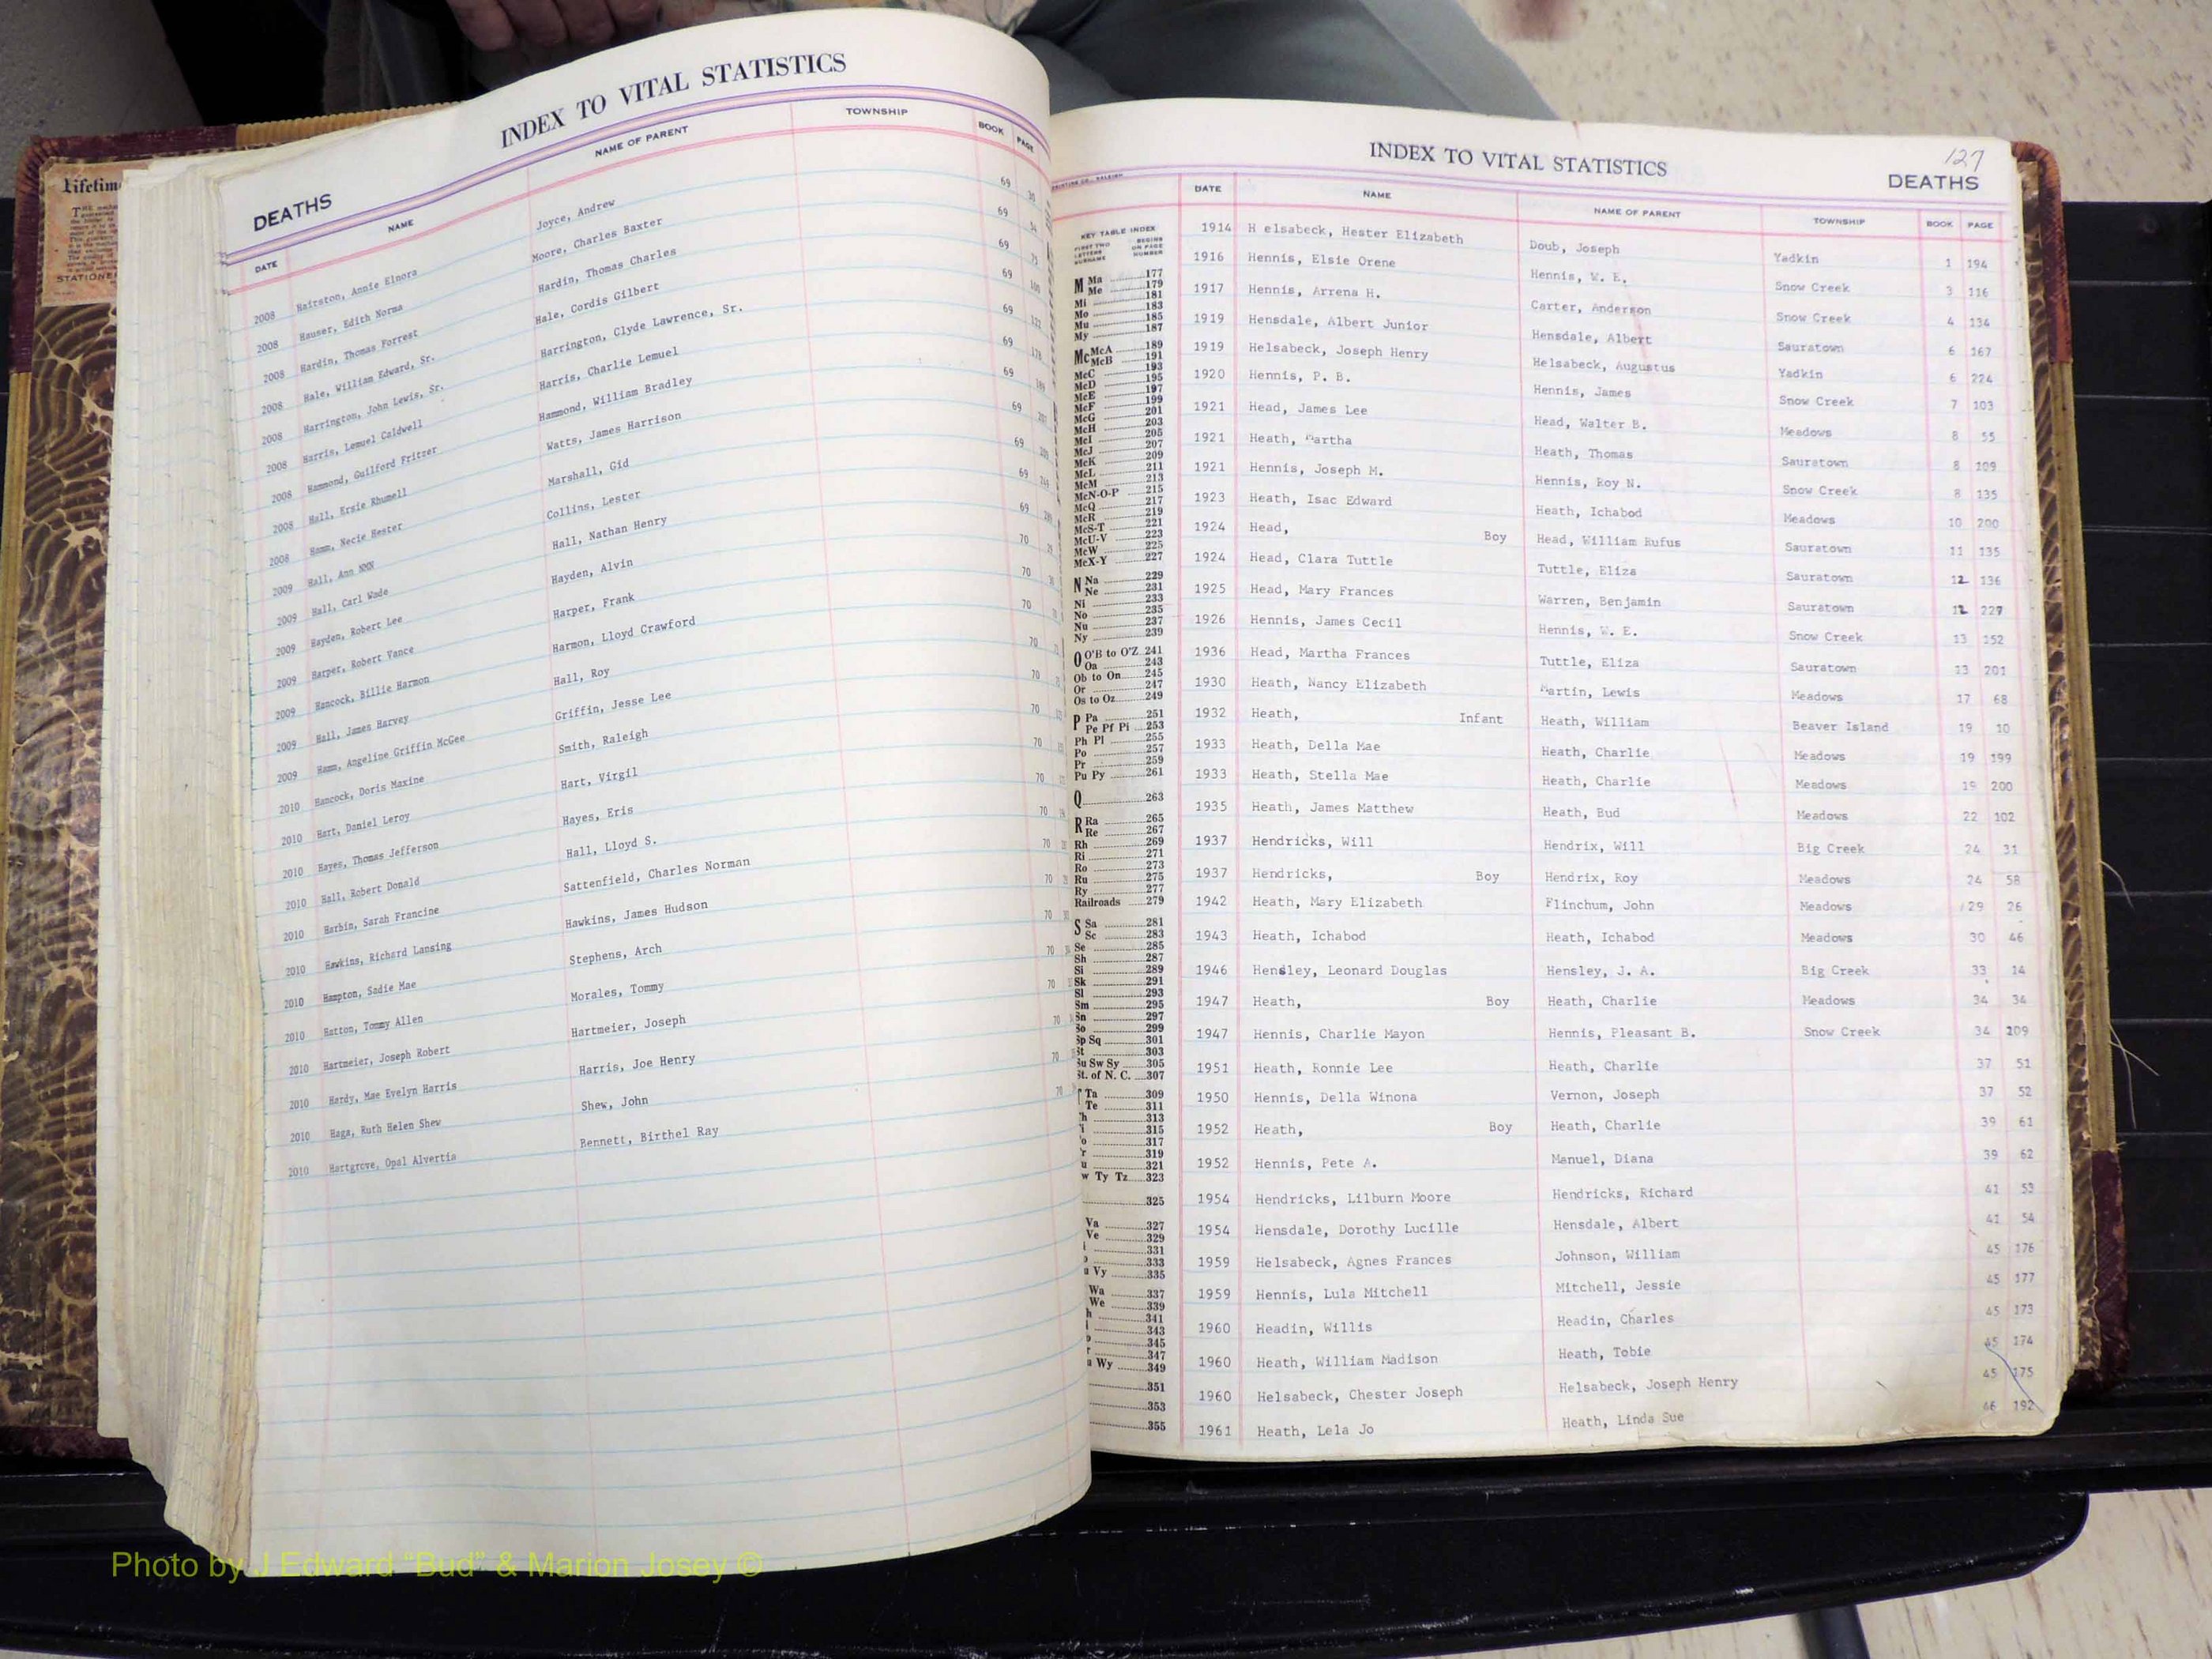 INDEX TO VITAL STATISTICS
DEATHS
DATE NAME NAME OF PARENT TOWNSHIP BOOK PAGE
2008 Hairston, Annie Elnora Joyce, Andrew 69
2008 Hauser, Edith Norma Moore, Charles Baxter 69
2008 Hardin, Thomas Forrest Hardin, Thomas Charles 69
2008 Hale, William Edward, Sr. Hale, Cordis Gilbert 69
2008 Harrington, John Lewis, Sr. Harrington, Clyde Lawrence, Sr. 69
2008 Harris, Lemuel Caldwell Harris, Charlie Lemuel 69
2008 Hammond, Guilford Fritzer Hammond, William Bradley 69
2008 Hall, Ersie Rhumell Watts, James Harrison 69
2008 Hamm, Necie Hester Marshall, Gid 69
2009 Hall, Ann NMN Collins, Lester 69
2009 Hall, Carl Wade Hall, Nathan Henry 69
2009 Hayden, Robert Lee Hayden, Alvin 70
2009 Harper, Robert Vance Harper, Frank 70
2009 Hancock, Billie Harmon Harmon, Lloyd Crawford 70
2009 Hall, James Harvey Hall, Roy 70
2009 Hamm, Angeline Griffin McGee Griffin, Jesse Lee 70
2010 Hancock, Doris Maxine Smith, Raleigh 70
2010 Hart, Daniel Leroy Hart, Virgil 70
2010 Hayes, Thomas Jefferson Hayes, Eris 70
2010 Hall, Robert Donald Hall, Lloyd S. 70
2010 Harbin, Sarah Francine Sattenfield, Charles Norman 70
2010 Hawkins, Richard Lansing Hawkins, James Hudson 70
2010 Hampton, Sadie Mae Stephens, Arch 70
2010 Hatton, Tommy Allen Morales, Tommy 70
2010 Hartmeier, Joseph Robert Hartmeier, Joseph 70
2010 Hardy, Mae Evelyn Harris Harris, Joe Henry 70
2010 Haga, Ruth Helen Shew Shew, John 70
2010 Hartgrove, Opal Alvertia Bennett, Birthel Ray
Lifetime
STATIONE
INDEX TO VITAL STATISTICS
127
DEATHS
DATE NAME NAME OF PARENT TOWNSHIP BOOK PAGE
1914 H elsabeck, Hester Elizabeth Doub, Joseph Yadkin 1 194
1916 Hennis, Elsie Orene Hennis, W. E. Snow Creek 3 116
1917 Hennis, Arrena H. Carter, Anderson Snow Creek 4 134
1919 Hensdale, Albert Junior Hensdale, Albert Sauratown 6 167
1919 Helsabeck, Joseph Henry Helsabeck, Augustus Yadkin 6 224
1920 Hennis, P. B. Hennis, James Snow Creek 7 103
1921 Head, James Lee Head, Walter B. Meadows 8 55
1921 Heath, Martha Heath, Thomas Sauratown 8 109
1921 Hennis, Joseph M. Hennis, Roy N. Snow Creek 8 135
1923 Heath, Isac Edward Heath, Ichabod Meadows 10 200
1924 Head, Boy Head, William Rufus Sauratown 11 135
1924 Head, Clara Tuttle Tuttle, Eliza Sauratown 12 136
1925 Head, Mary Frances Warren, Benjamin Sauratown 12 227
1926 Hennis, James Cecil Hennis, W. E. Snow Creek 13 152
1936 Head, Martha Frances Tuttle, Eliza Sauratown 13 201
1930 Heath, Nancy Elizabeth Martin, Lewis Meadows 17 68
1932 Heath, Infant Heath, William Beaver Island 19 10
1933 Heath, Della Mae Heath, Charlie Meadows 19 199
1933 Heath, Stella Mae Heath, Charlie Meadows 19 200
1935 Heath, James Matthew Heath, Bud Meadows 22 102
1937 Hendricks, Will Hendrix, Will Big Creek 24 31
1937 Hendricks, Boy Hendrix, Roy Meadows 24 58
1942 Heath, Mary Elizabeth Flinchum, John Meadows 29 26
1943 Heath, Ichabod Heath, Ichabod Meadows 30 46
1946 Hensley, Leonard Douglas Hensley, J. A. Big Creek 33 14
1947 Heath, Boy Heath, Charlie Meadows 34 34
1947 Hennis, Charlie Mayon Hennis, Pleasant B. Snow Creek 34 109
1951 Heath, Ronnie Lee Heath, Charlie 37 51
1950 Hennis, Della Winona Vernon, Joseph 37 52
1952 Heath, Boy Heath, Charlie 39 61
1952 Hennis, Pete A. Manuel, Diana 39 62
1954 Hendricks, Lilburn Moore Hendricks, Richard 41 53
1954 Hensdale, Dorothy Lucille Hensdale, Albert 41 54
1959 Helsabeck, Agnes Frances Johnson, William 45 176
1959 Hennis, Lula Mitchell Mitchell, Jessie 45 177
1960 Headin, Willis Headin, Charles 45 173
1960 Heath, William Madison Heath, Tobie 45 174
1960 Helsabeck, Chester Joseph Helsabeck, Joseph Henry 45 175
1961 Heath, Lela Jo Heath, Linda Sue 46 192
KEY TABLE INDEX
FIRST TWO LETTERS SURNAME BEGINS ON PAGE NUMBER
M Ma 177
Me 179
Mi 181
Mo 183
Mu 185
My 187
Mc McA 189
McB 191
McC 193
McD 195
McE 197
McF 199
McG 201
McH 203
McI 205
McJ 207
McK 209
McL 211
McM 213
McN-O-P 215
McQ 217
McR 219
McS-T 221
McU-V 223
McW 225
McX-Y 227
N Na 229
Ne 231
Ni 233
No 235
Nu 237
Ny 239
O O'B to O'Z 241
Oa 243
Ob to On 245
Or 247
Os to Oz 249
P Pa 251
Pe Pf Pi 253
Ph Pl 255
Po 257
Pr 259
Pu Py 261
Q 263
R Ra 265
Re 267
Rh 269
Ri 271
Ro 273
Ru 275
Ry 277
Railroads 279
S Sa 281
Sc 283
Se 285
Sh 287
Si 289
Sk 291
Sl 293
Sm 295
Sn 297
So 299
Sp Sq 301
St 303
Su Sw Sy 305
St. of N. C. 307
Ta 309
Te 311
313
315
317
319
321
w Ty Tz 323
325
Va 327
Ve 329
331
333
u Vy 335
Wa 337
We 339
341
343
345
347
u Wy 349
351
353
355
Photo by J Edward "Bud" & Marion Josey ©